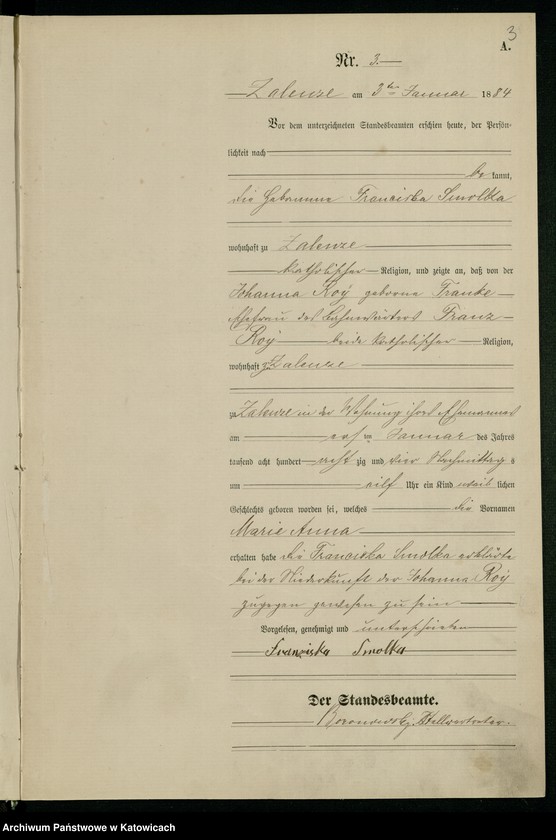 3
A.
Nr. 3.
Zalenze am 3ten Januar 1884
Vor dem unterzeichneten Standesbeamten erschien heute, der Persön-
lichkeit nach
be kannt,
die Hebamme Franciska Smolka
wohnhaft zu Zalenze
katholischer Religion, und zeigte an, daß von der
Johanna Roÿ geborne Franke
Ehefrau des Bahnwärters Franz
Roÿ beide katholischer Religion,
wohnhaft zu Zalenze
zu Zalenze in der Wohnung ihres Ehemannes
am ersten Januar des Jahres
tausend acht hundert acht zig und vier Nachmittag s
um eilf Uhr ein Kind weib lichen
Geschlechts geboren worden sei, welches die Vornamen
Marie Anna
erhalten habe die Franciska Smolka erklärte
bei der Niederkunft der Johanna Roÿ
zugegen gewesen zu sein
Vorgelesen, genehmigt und unterschrieben
Franziska Smolka
Der Standesbeamte.
Stellvertreter.
Archiwum Państwowe w Katowicach